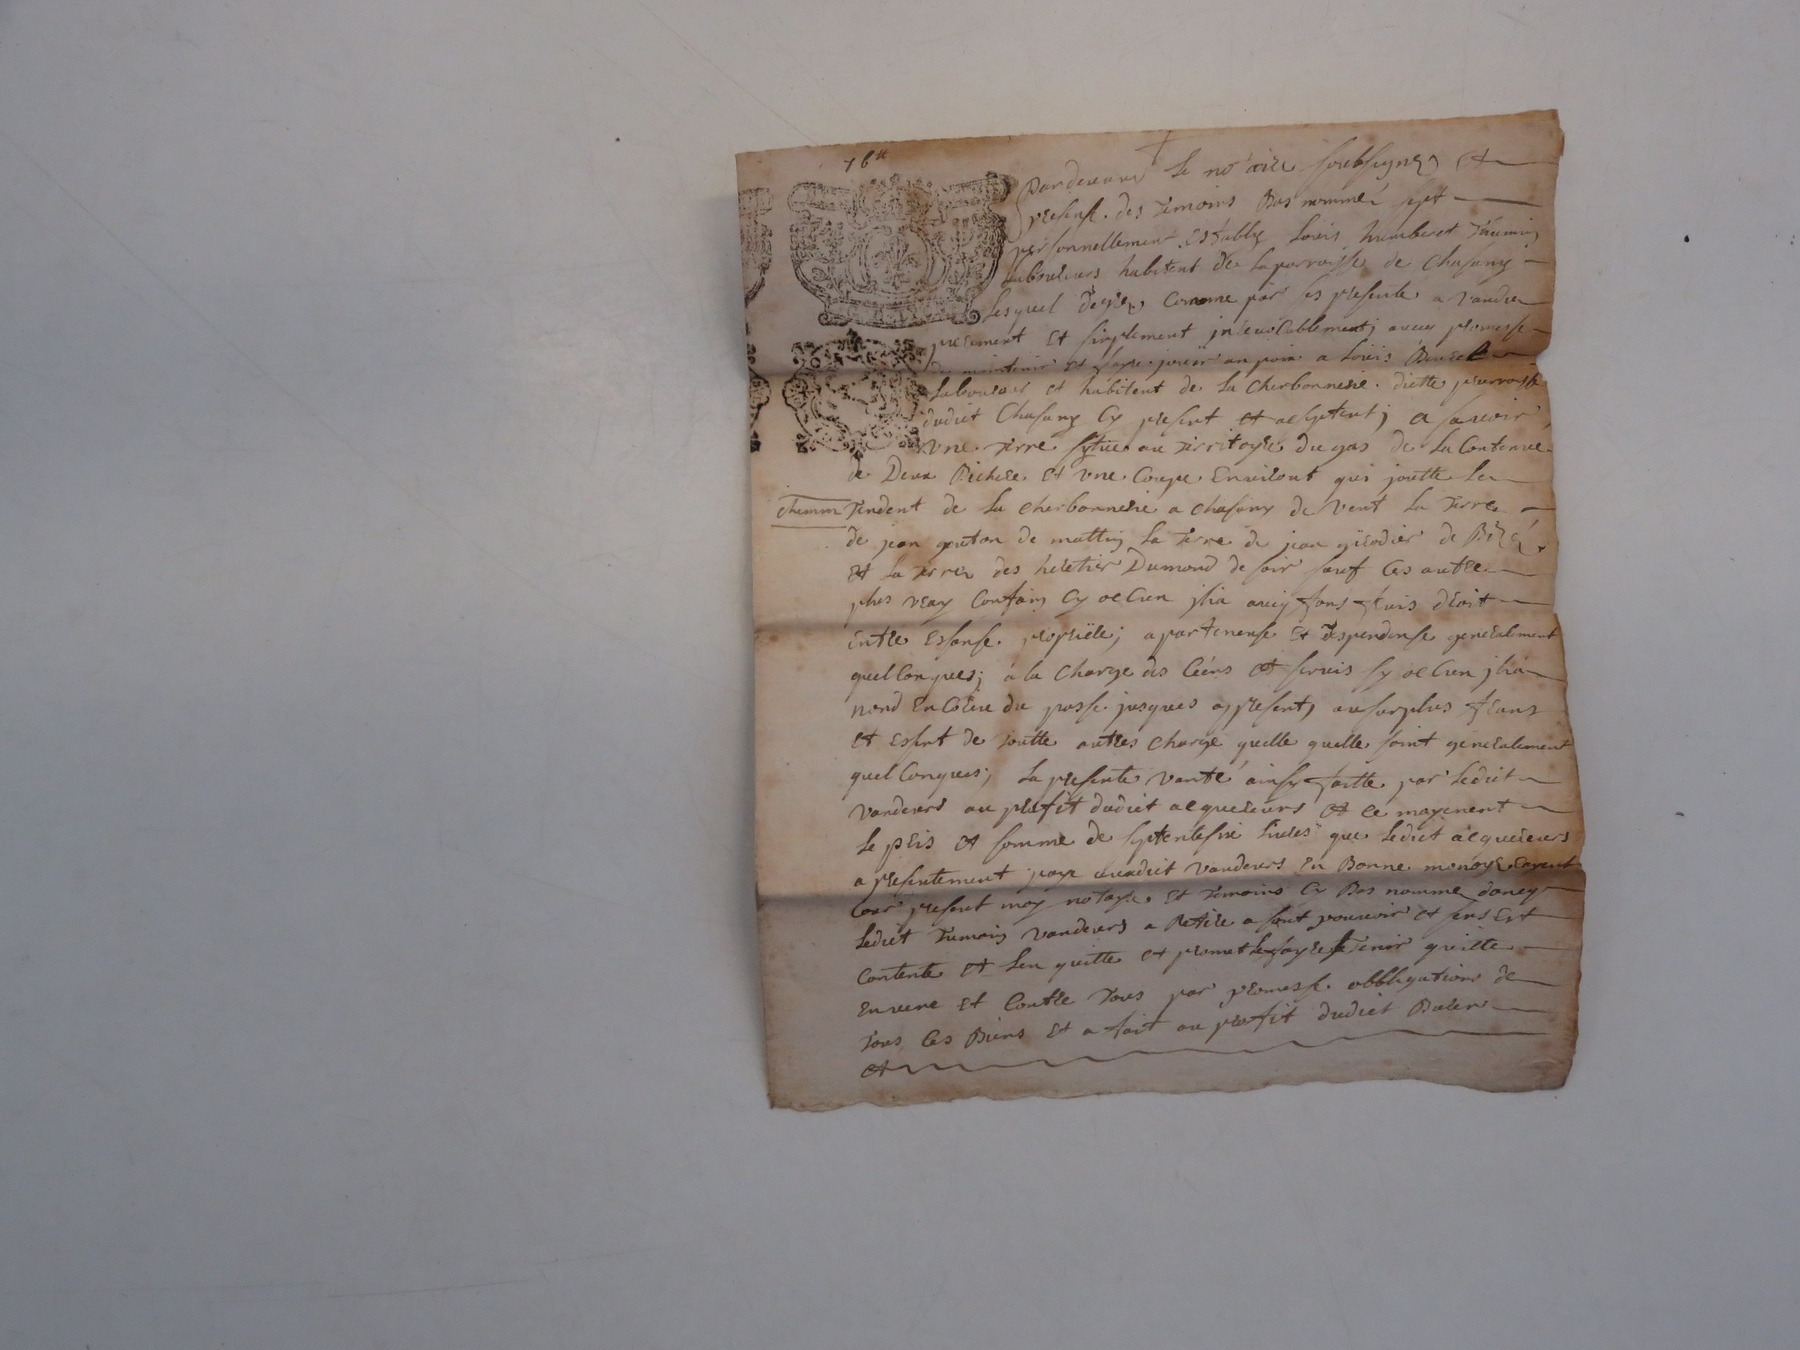 76tt
Pardevant Le notaire soubsigné et
present. des temoins Bas nommé s'est
personnellement Establi Louis humbert
laboureurs habitent de la parroisse de Chasany
Lesquel de gré comme par ses presente a vandu
purement Et simplement avecq promesse
de maintenir et fayre jouir a Louis
Laboureur et habitent de La Cherbonnerie. dictte parroisse
dudict Chasany Cy present et aceptent; a savoir
une terre sytuee au territoyre du gas de La Contenue
de Deux Bichere et une Coupe Environt qui joutte Le
chemin tendent de La Cherbonnerie a Chasany de vent La terre
de jean de mattin La terre de jean girodier de Bize
et La terre des heretier Dumond de soir sauf Ces autre
plus vray Confain Cy ocCun jlia avecq fons fruis droit
entre essanse. propriete; apartenense et despendense generalement
quelConques; à la Charge des Cens et servis sy ocCun jlia
nord En Coere du passe. jusques appresent, au surplus franc
et esent de toutte autres Charge quelle quelle soint generalement
quelConques; La presente vante ainsy faitte par Ledict
vandeurs au proffit dudict acquereurs et ce moyenent
Le pris et somme de septentesix Livres que Ledict acquereurs
a presentement paye audict vandeurs En Bonne monoye ayent
Cour present moy notayre et temoins Cy Bas nomme donc
Ledict vandeurs a Retire a sont pouvoir et s'ens Est
Contenté et Len quitte et promet Le fayre tenir quitte
Envere et Contre tous par promesse. obbligations de
tous Ces Biens et a fait au proffit dudict
et